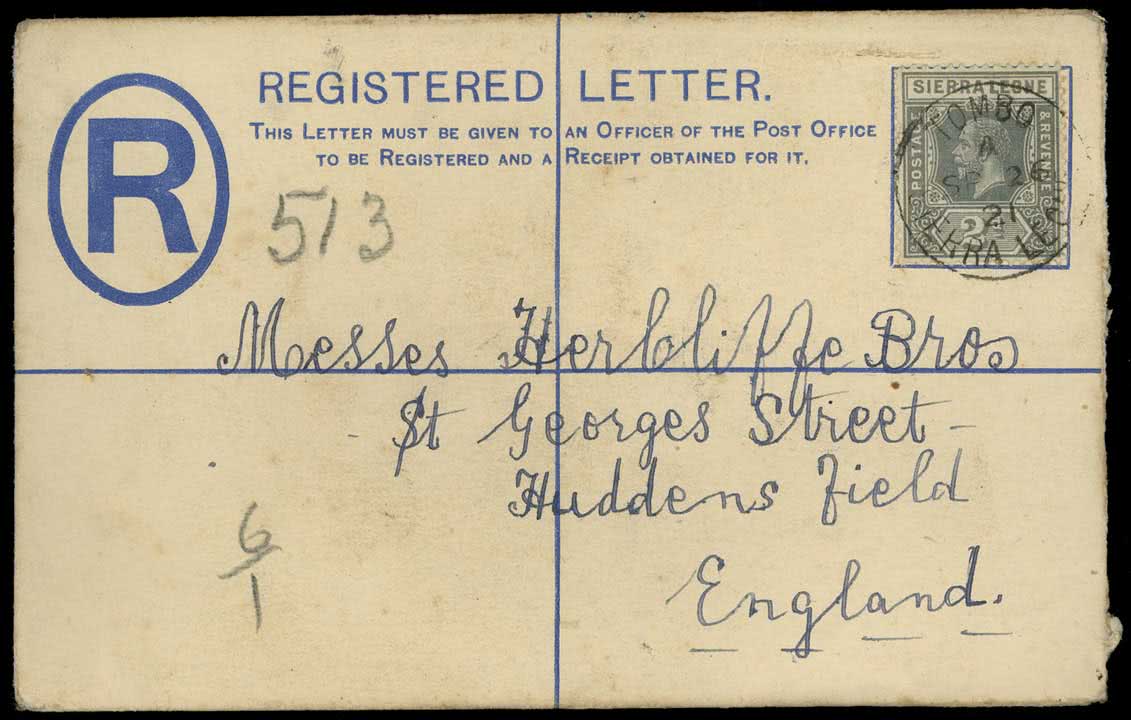 REGISTERED LETTER.
THIS LETTER MUST BE GIVEN TO AN OFFICER OF THE POST OFFICE
TO BE REGISTERED AND A RECEIPT OBTAINED FOR IT.
R
SIERRA LEONE
POSTAGE & REVENUE
2
TOMBO
A
SP 26
21
SIERRA LEONE
513
Messes Herbliffe Bros
St Georges Street -
Huddens field
England.
6
1